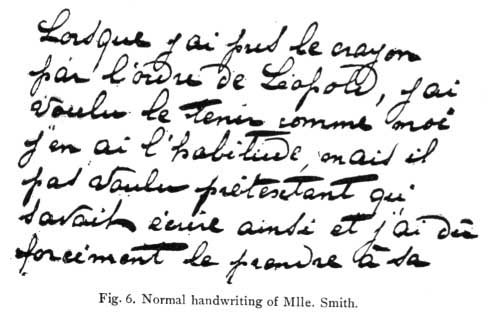 Lorsque j'ai pris le crayon
par l'ordre de Léopold, j'ai
voulu le tenir comme moi
j'en ai l'habitude, mais il
pas voulu prétextant qui
savait écrire ainsi et j'ai dû
forcément le prendre à sa
Fig. 6. Normal handwriting of Mlle. Smith.